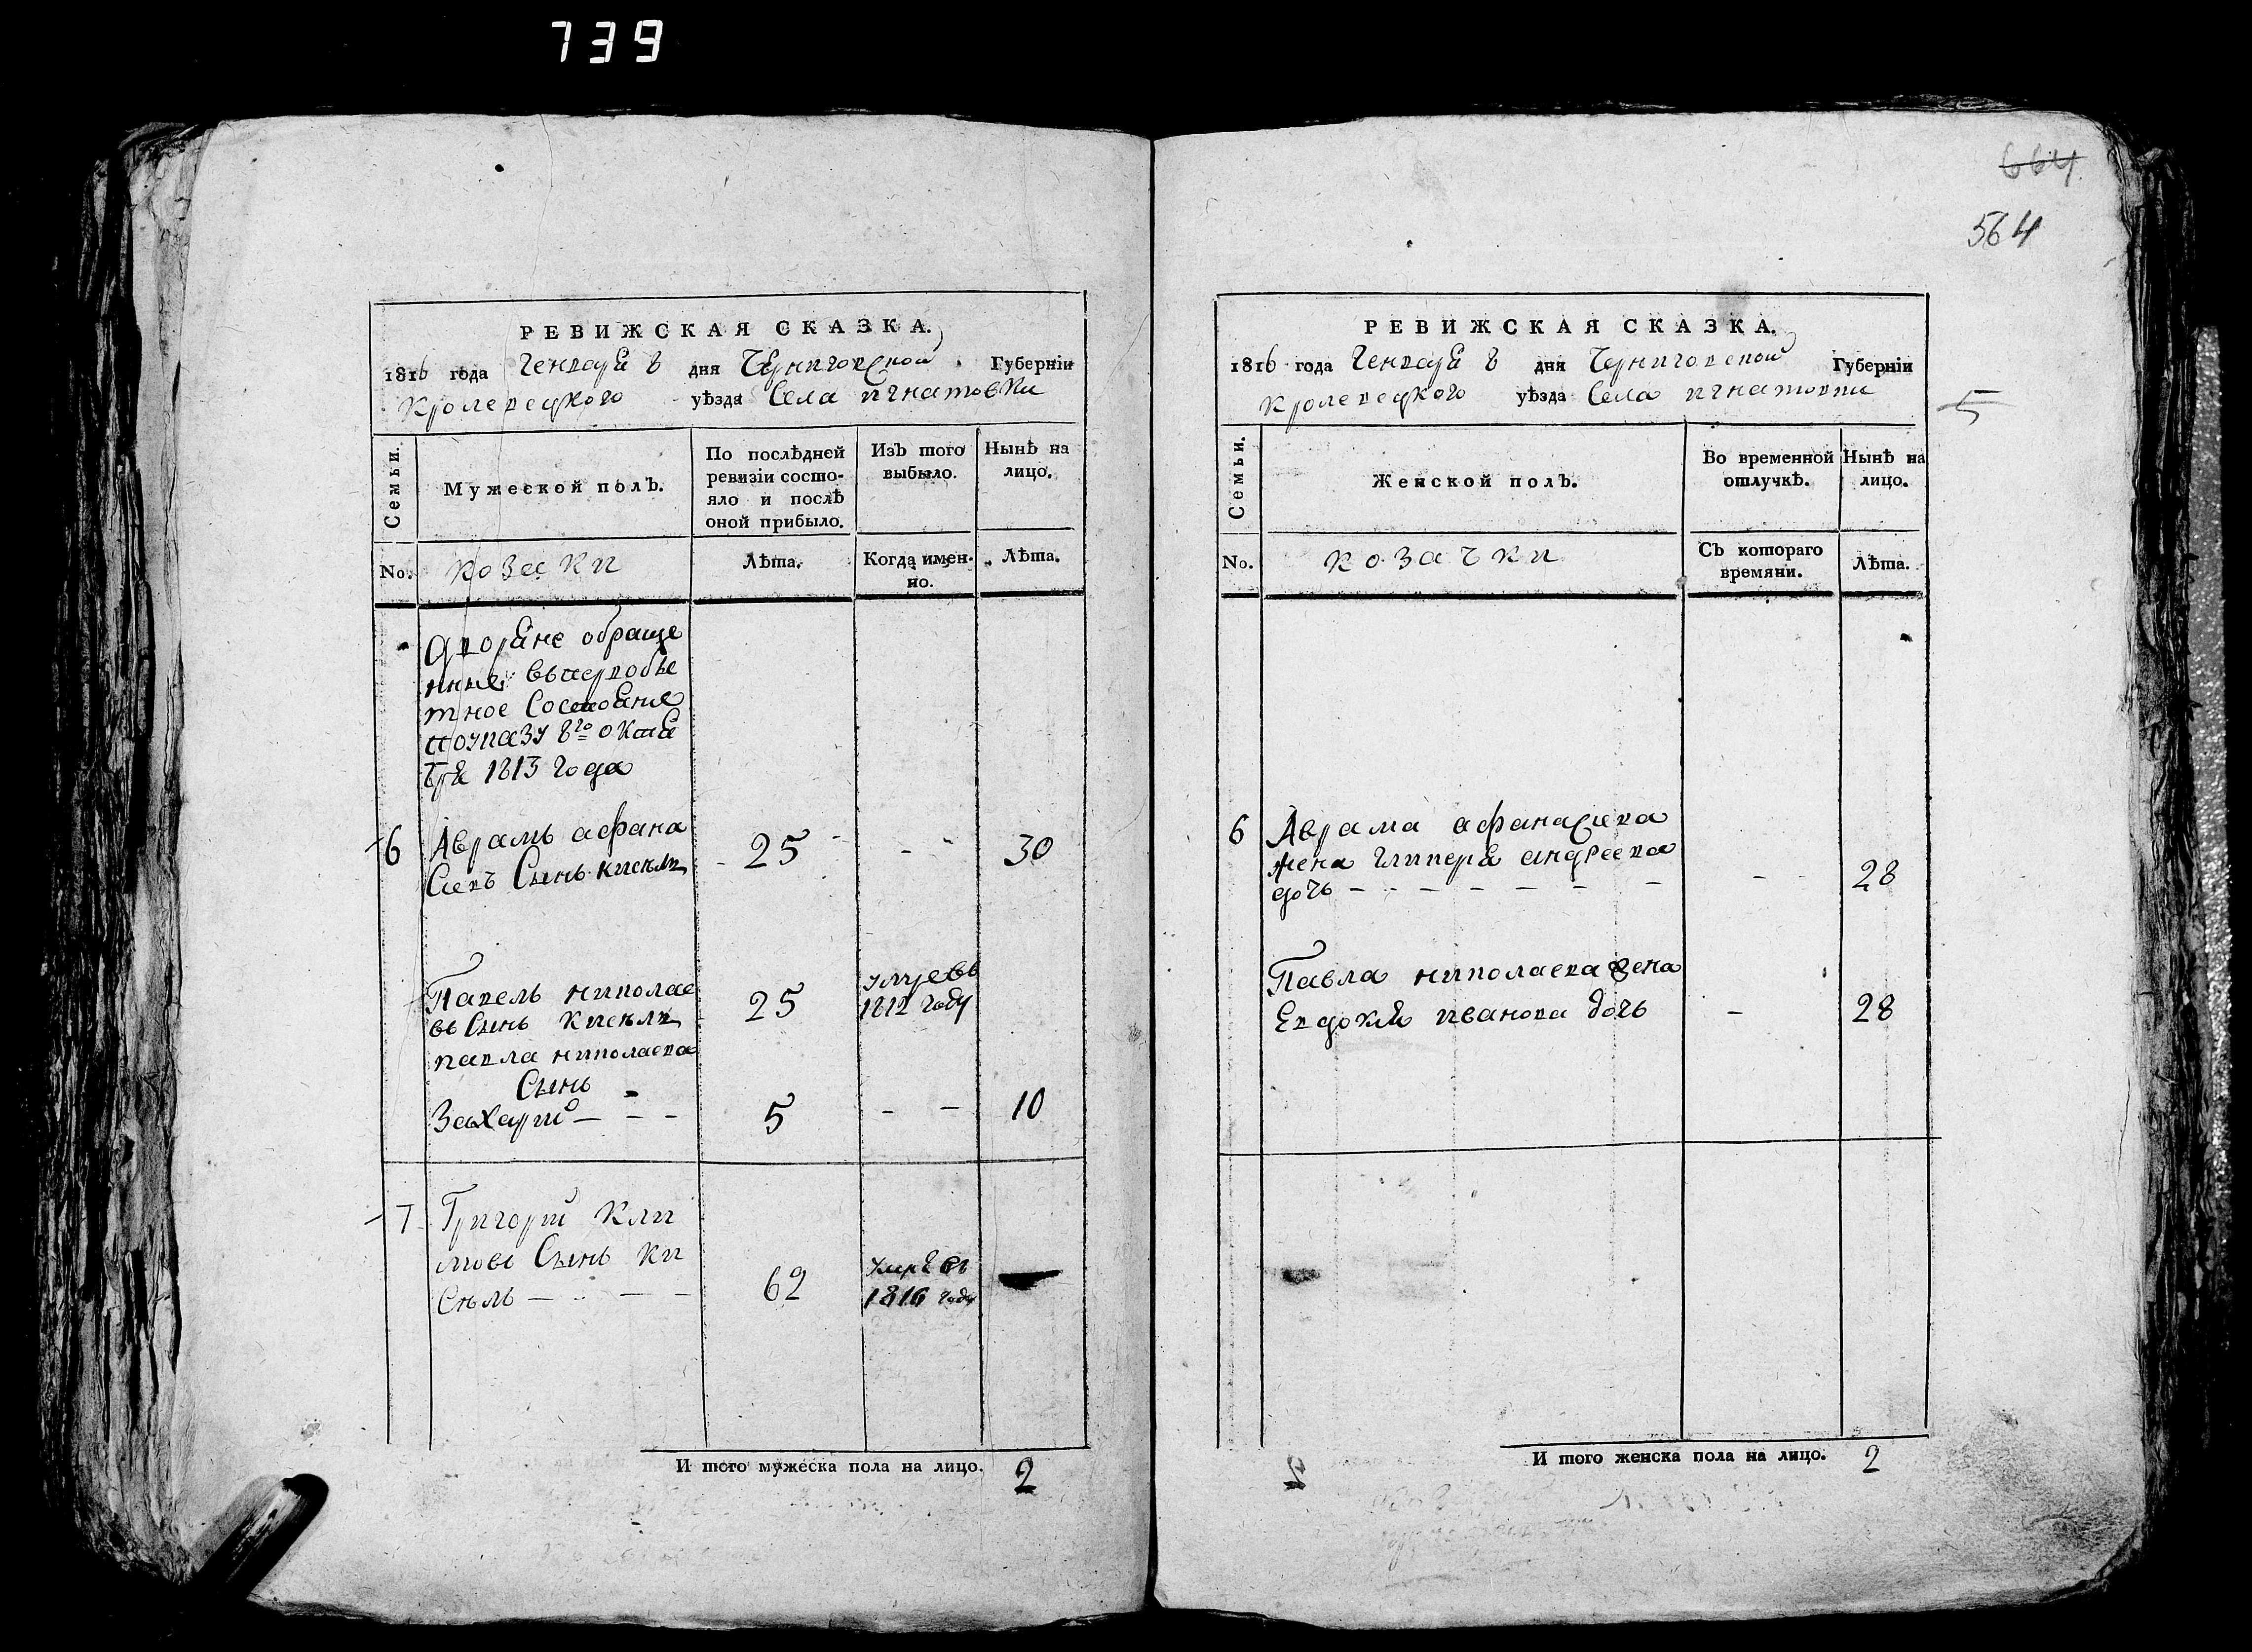 739
РЕВИЖСКАЯ СКАЗКА.
1816 года Генваря 8 дня Черниговской Губерніи
Кролевецкого уѣзда Села игнатовки
Семьи.
Мужеской полъ.
По послѣдней
ревизіи состо-
яло и послѣ
оной прибыло.
Изъ того
выбыло.
Нынѣ на
лицо.
No.
козаки
Лѣта.
Когда имен-
но.
Лѣта.
дворяне обраще
нные въ первобы
тное Состояние
поуказу 8го октя
бря 1813 года
6 Аврамъ афана
Сиевъ Сынъ 25 - - 30
Павелъ николае
въ Сынъ 25 умре въ
1812 году
павла николаева
Сынъ
Захарий - - - 5 - - 10
7 Григорий Кли
мовъ Сынъ Ки
Сѣль - - - - 62 умре въ
1816 году
И того мужеска пола на лицо. 2
664
564
РЕВИЖСКАЯ СКАЗКА.
1816 года Генваря 8 дня Черниговской Губерніи
Кролевецкого уѣзда Села игнатовки
5
Семьи.
Женской полъ.
Во временной
отлучкѣ.
Нынѣ на
лицо.
No.
козачки
Съ котораго
времяни.
Лѣта.
6 Аврама афанасиева
жена андреева
дочь - - - - - - - - 28
Павла николаева жена
Евдокия иванова дочь - 28
И того женска пола на лицо. 2